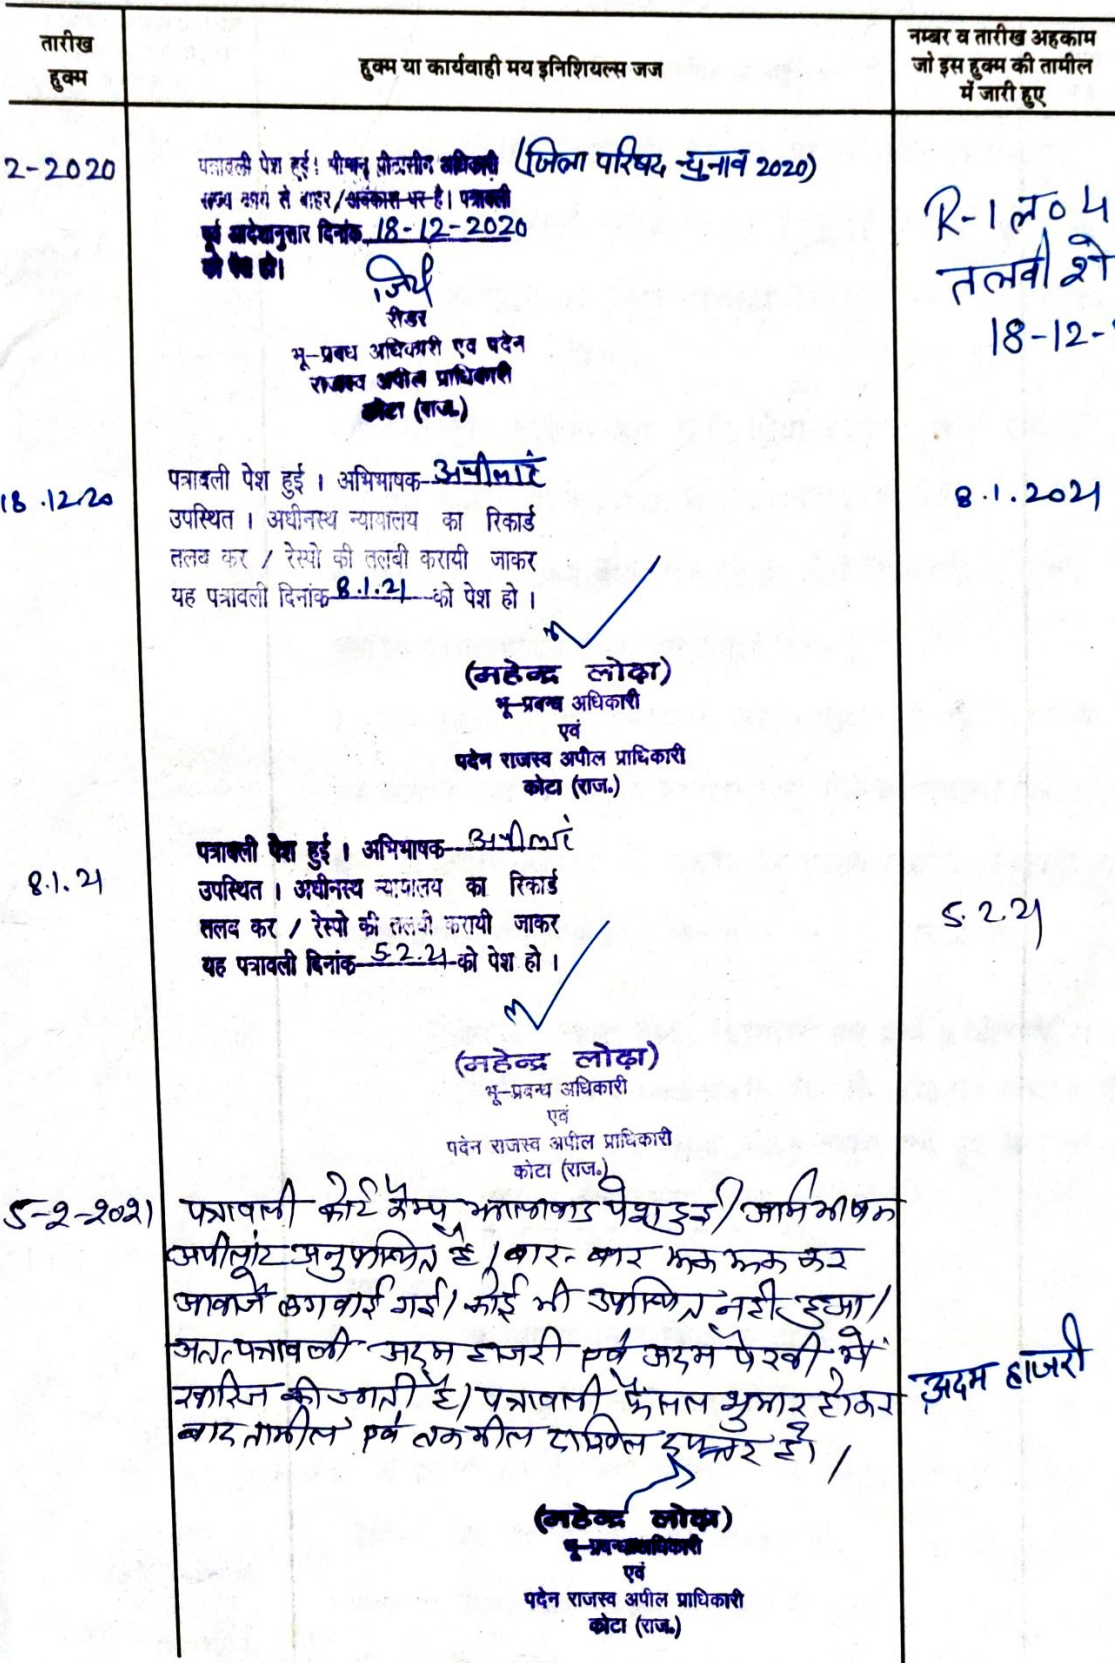 तारीख
हुक्म
हुक्म या कार्यवाही मय इनिशियल्स जज
नम्बर व तारीख अहकाम
जो इस हुक्म की तामील
में जारी हुए
2-2020
पत्रावली पेश हुई। श्रीमान् पीठासीन अधिकारी (जिला परिषद चुनाव 2020)
राज्य कार्य से बाहर/अवकाश पर है। पत्रावली
पूर्व आदेशानुसार दिनांक 18-12-2020
को पेश हो।
R-1 ल० 4
तलवी शे
18-12-
रीडर
भू-प्रबंध अधिकारी एव पदेन
राजस्व अपील प्राधिकारी
कोटा (राज.)
18.12.20
पत्रावली पेश हुई । अभिभाषक अपीलांट
उपस्थित । अधीनस्थ न्यायालय का रिकार्ड
तलब कर / रेस्पो की तलबी करायी जाकर
यह पत्रावली दिनांक 8.1.21 को पेश हो ।
8.1.2021
(महेन्द्र लोढ़ा)
भू-प्रबन्ध अधिकारी
एवं
पदेन राजस्व अपील प्राधिकारी
कोटा (राज.)
8.1.21
पत्रावली पेश हुई । अभिभाषक अपीलांट
उपस्थित । अधीनस्थ न्यायालय का रिकार्ड
तलब कर / रेस्पो की तलबी करायी जाकर
यह पत्रावली दिनांक 5.2.21 को पेश हो ।
5.2.21
(महेन्द्र लोढ़ा)
भू-प्रबन्ध अधिकारी
एवं
पदेन राजस्व अपील प्राधिकारी
कोटा (राज.)
5-2-2021
पत्रावली कोर्ट कैम्प झालावाड पेश हुई। अभिभाषक
अपीलांट अनुपस्थित है। बार-बार रूक रूक कर
आवाजें लगवाई गई। कोई भी उपस्थित नहीं हुआ।
अतः पत्रावली अदम हाजरी एवं अदम पैरवी में
खारिज की जाती है। पत्रावली फैसल शुमार होकर
बाद तामील एवं तकमील दाखिल दफ्तर हो।
अदम हाजरी
(महेन्द्र लोढ़ा)
भू-प्रबन्ध अधिकारी
एवं
पदेन राजस्व अपील प्राधिकारी
कोटा (राज.)